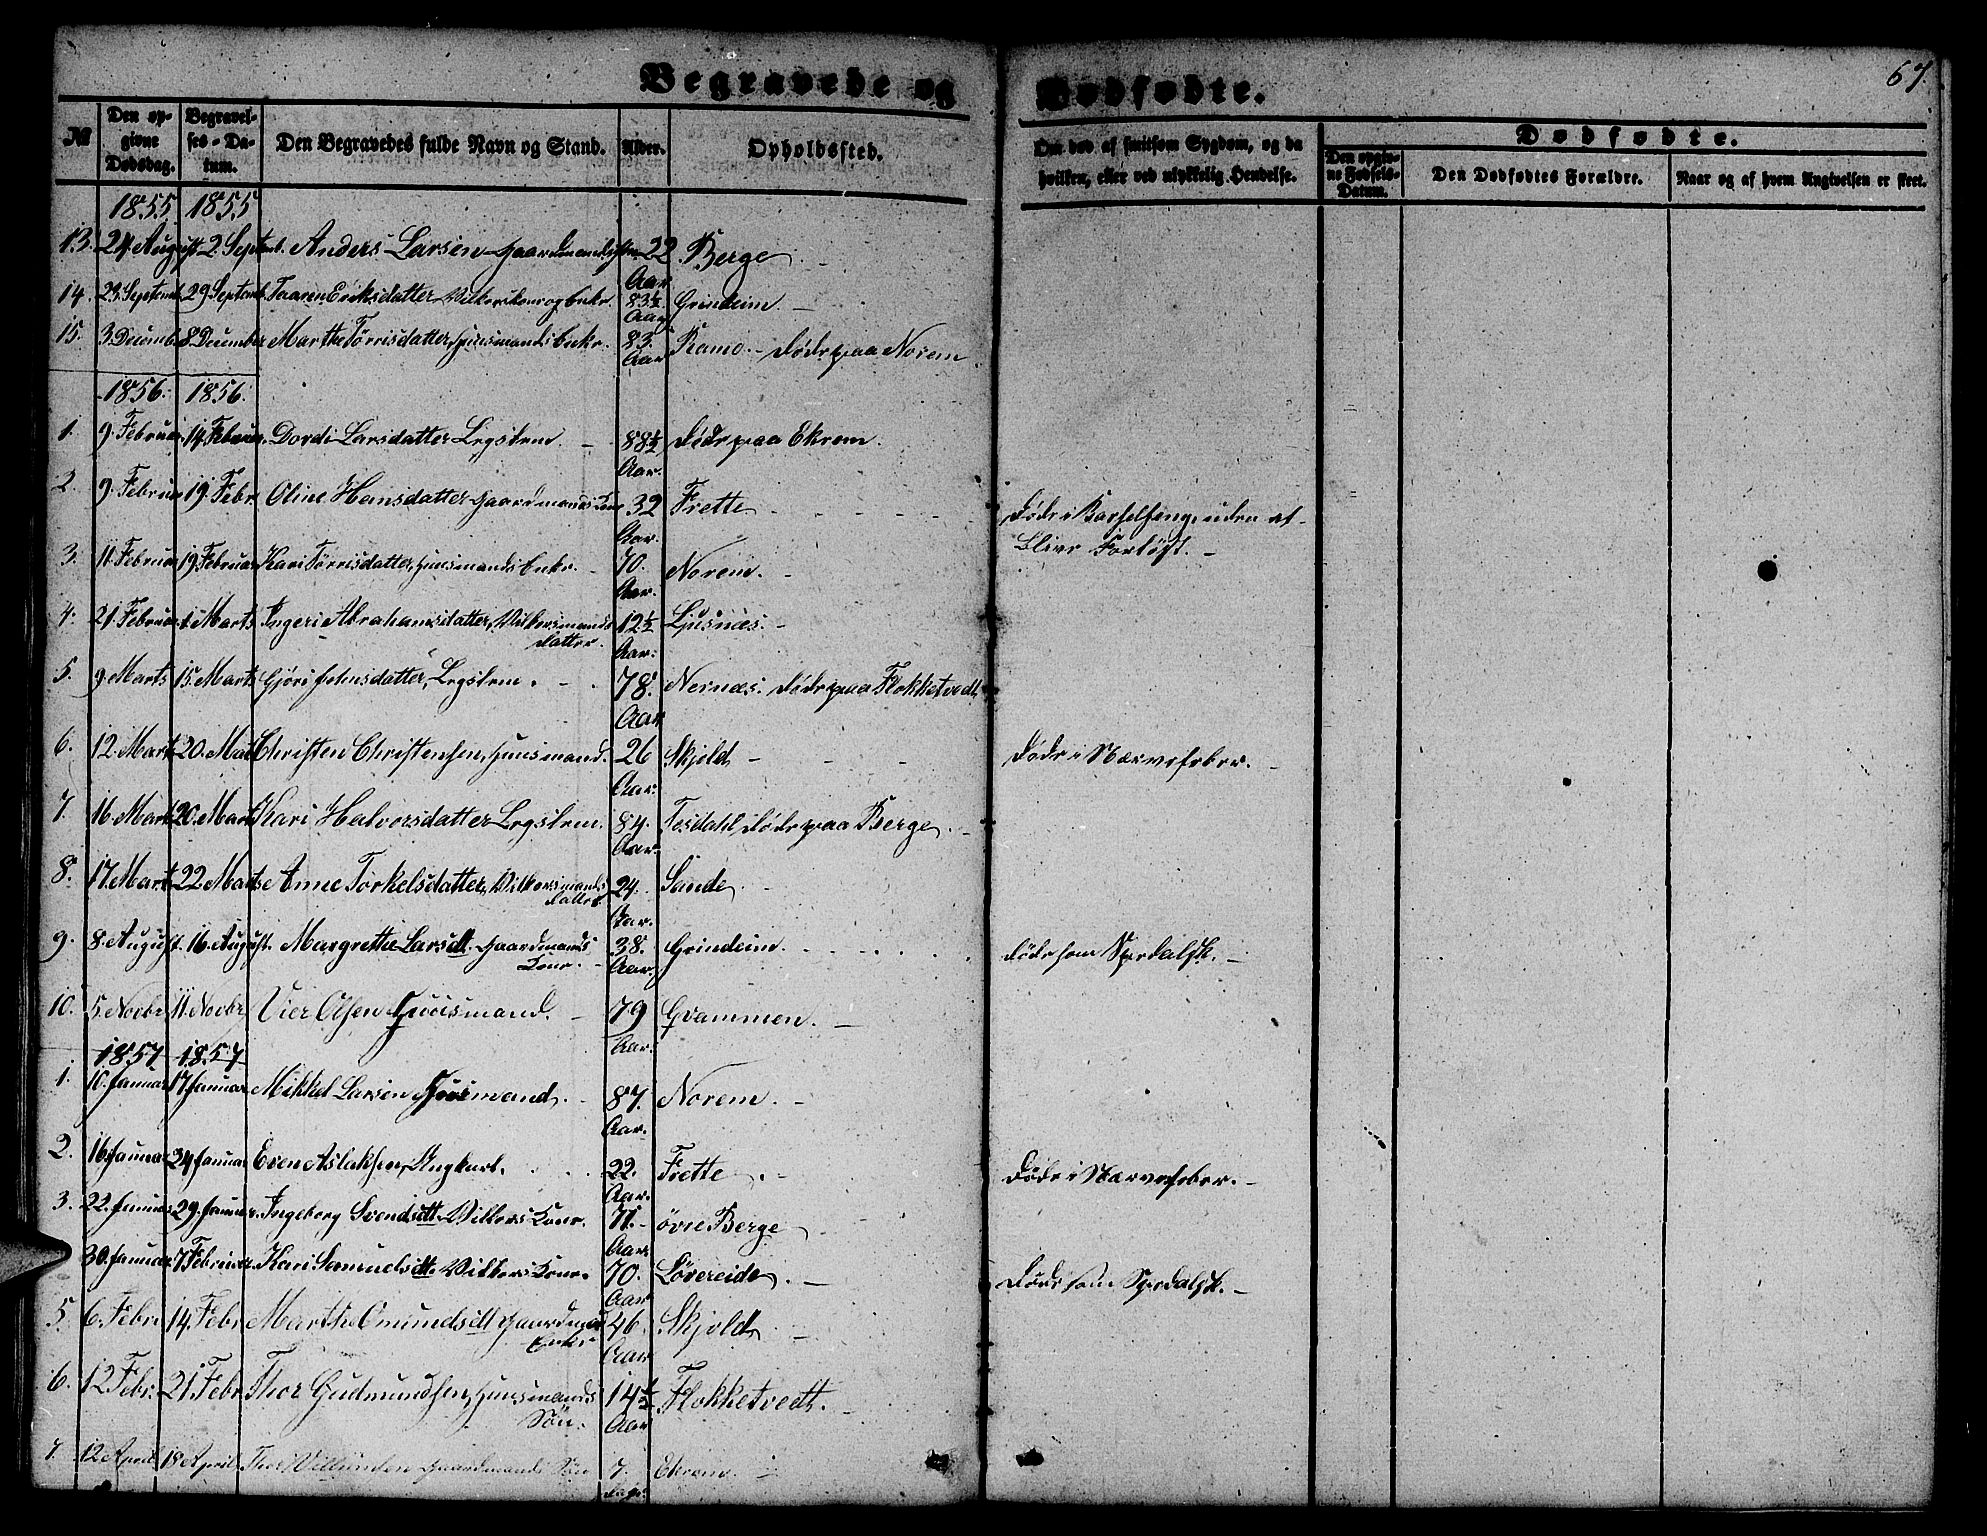 Begravede og Dødfødte.
67.
№ Den opgivne Dødsdag. Begravelses-Datum. Den Begravedes fulde Navn og Stand. Alder. Opholdssted. Om død af smitsom Sygdom, og da hvilken, eller ved ulykkelig Hendelse. Dødfødte. Den opgivne Fødsels-Datum. Den Dødfødtes Forældre. Naar og af hvem Angivelsen er skeet.
1855 1855
13. 24 August 2. Septemb. Anders Larsen 22 Aar Berge.
14. 23. Septemb. 29 Septemb. Taaren Eriksdatter 83½ Aar Grindeim.
15. 3. Decemb. 8. December Marthe Tørrisdatter, Huusmands Enke. 83. Aar Ramo. døde paa Norem
1856. 1856.
1. 9. Februar 14. Februar. Dordi Larsdatter Legslem. 88½ Aar. døde paa Ekrem.
2. 9. Februar 19. Febr. Oline Hansdatter Gaardmands Kone 32 Aar. Frette. døde i Barselseng, uden at
blive Forløst.
3. 11. Februar 19. Februar Kari Tørrisdatter, Huusmands Enke. 70. Aar. Norem.
4. 21. Februar 1 Marts Ingeri Abrahamsdatter, datter. 12½ Aar. Ljusnæs.
5. 9. Marts 15. Marts Gjøri Johnsdatter, Legslem. 78. Aar Nernæs. døde paa Flokketvedt.
6. 12. Marts 20. Mar Christen Christensen, Huusmand. 26 Aar. Skjold døde i Nervefeber.
7. 16. Mart 20. Mart Kari Halvorsdatter Legslem. 84. Aar. Tesdahl, døde paa Berge.
8. 17. Mart 22. Marts Anne Torkelsdatter, datter 24. Aar. Sande.
9. 8. August. 16. August. Margrethe Larsdt. Gaardmands Kone. 38. Aar. Grindeim. døde som Spedalsk.
10. 5. Novbr 11. Novbr. Vier Olsen Huusmand. 79 Aar. Qvammen.
1857 1857
1. 10. Januar 17 Januar Mikkel Larsen Huusmand. 87. Aar. Norem.
2. 16. Januar 24 Januar Even Aslaksen, Ungkarl. 22. Aar. Frette. døde i Nervefeber.
3. 22. Januar 29. Januar. Ingeborg Svendsdt. Kone. 71. Aar. øvre Berge
30. Januar 7 Februar. Kari Samuelsdt. Kone. 70. Aar Løvereide. døde som Spedalsk.
5. 6. Febr 14. Febr Marthe Omundsdt Gaardmands Enke 46. Aar Skjold
6. 12 Febr. 21. Febr Thor Gudmundsen, Huusmands Søn. 14½ Aar Flokketvedt.
7. 12 April 18 April Thor Gaardmands Søn 7. dage. Ekrem.